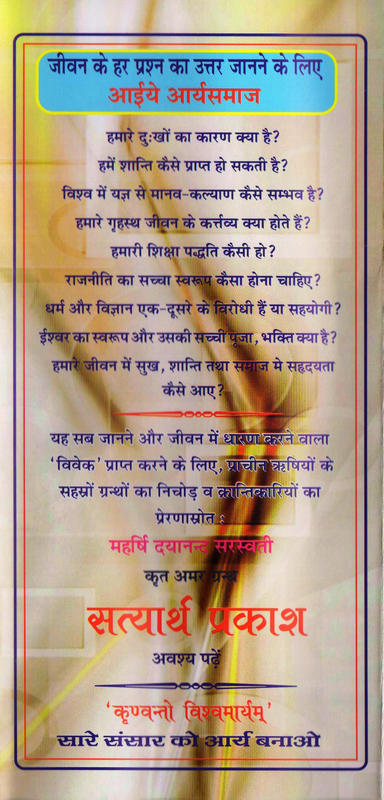 जीवन के हर प्रश्न का उत्तर जानने के लिए
आईये आर्यसमाज
हमारे दुःखों का कारण क्या है?
हमें शान्ति कैसे प्राप्त हो सकती है?
विश्व में यज्ञ से मानव-कल्याण कैसे सम्भव है?
हमारे गृहस्थ जीवन के कर्त्तव्य क्या होते हैं?
हमारी शिक्षा पद्धति कैसी हो?
राजनीति का सच्चा स्वरूप कैसा होना चाहिए?
धर्म और विज्ञान एक-दूसरे के विरोधी हैं या सहयोगी?
ईश्वर का स्वरूप और उसकी सच्ची पूजा, भक्ति क्या है?
हमारे जीवन में सुख, शान्ति तथा समाज मे सहृदयता
कैसे आए?
यह सब जानने और जीवन में धारण करने वाला
‘विवेक’ प्राप्त करने के लिए, प्राचीन ऋषियों के
सहस्रों ग्रन्थों का निचोड़ व क्रान्तिकारियों का
प्रेरणास्रोत :
महर्षि दयानन्द सरस्वती
कृत अमर ग्रन्थ
सत्यार्थ प्रकाश
अवश्य पढ़ें
‘कृण्वन्तो विश्वमार्यम्’
सारे संसार को आर्य बनाओ